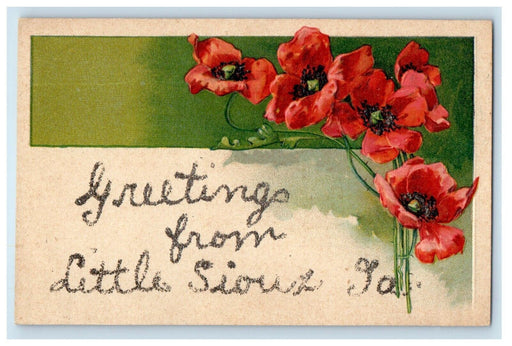 Greetings
from
Little Sioux Ia.